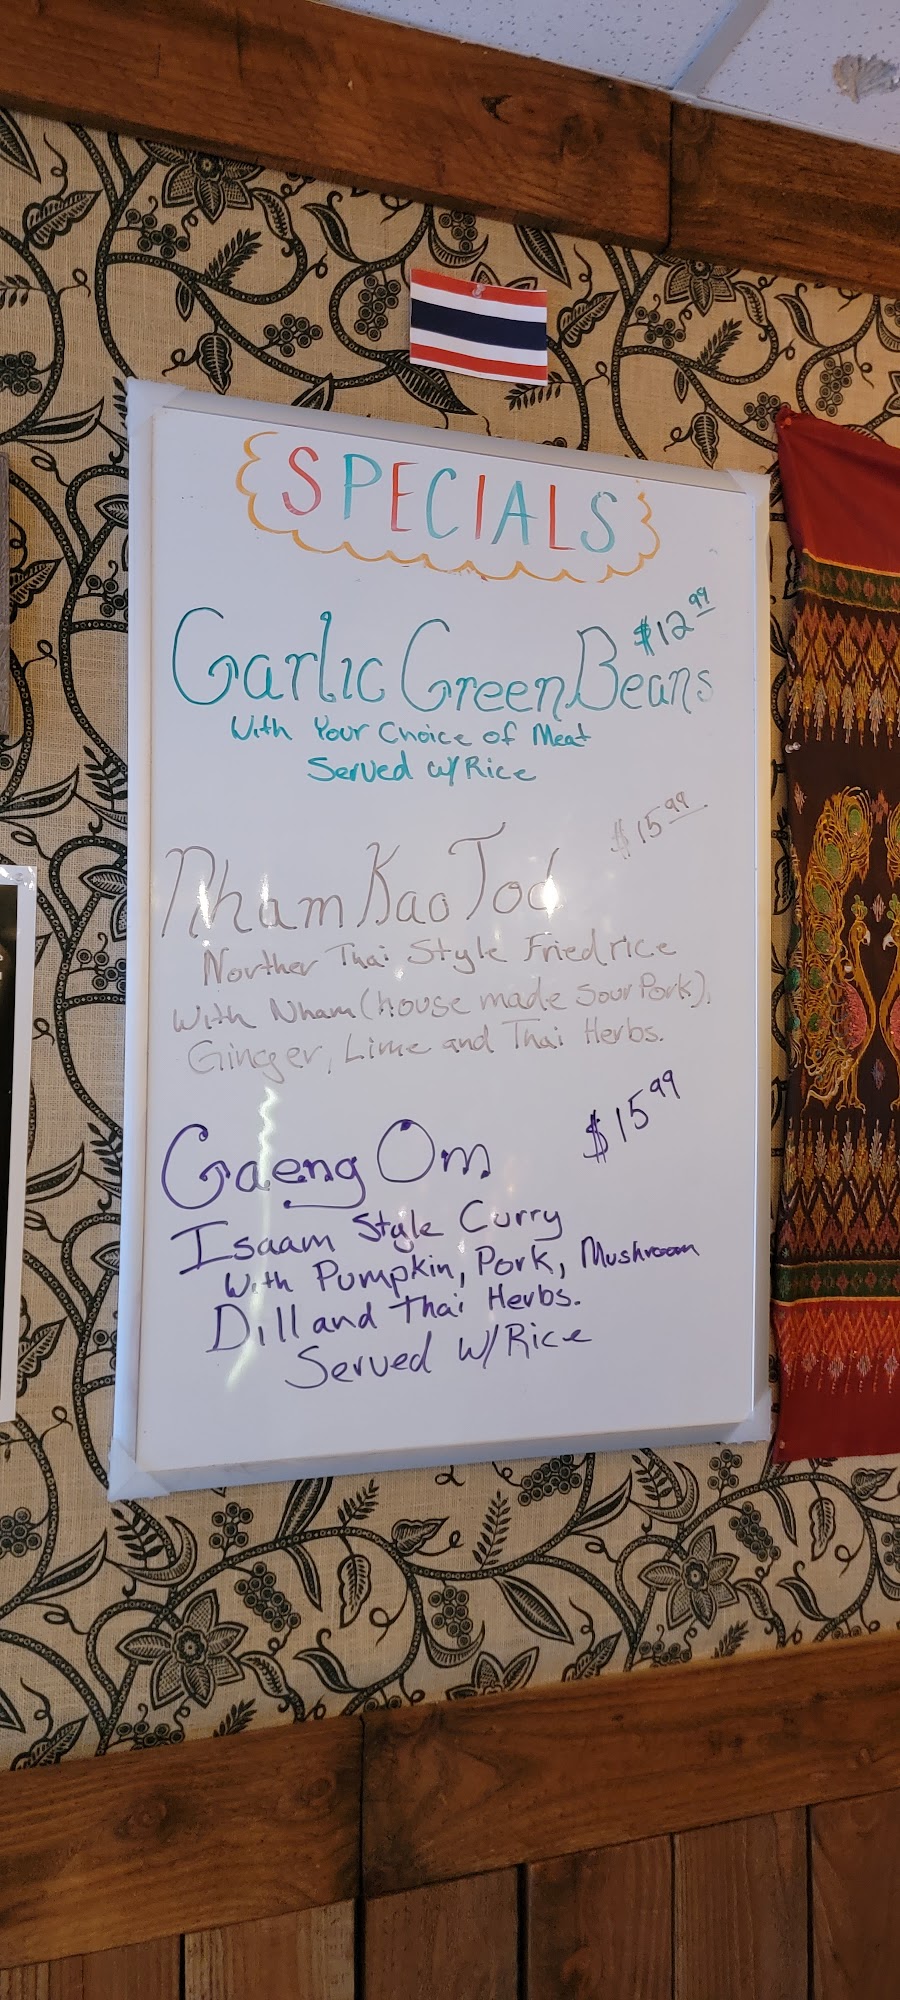 SPECIALS
Garlic Green Beans $12.99
With Your Choice of Meat
Served w/Rice
Nham Kao Tod $15.99
Norther Thai Style Fried rice
With Nham (house made Sour Pork),
Ginger, Lime and Thai Herbs.
Gaeng Om $15.99
Isaam Style Curry
With Pumpkin, Pork, Mushroom
Dill and Thai Herbs.
Served w/Rice